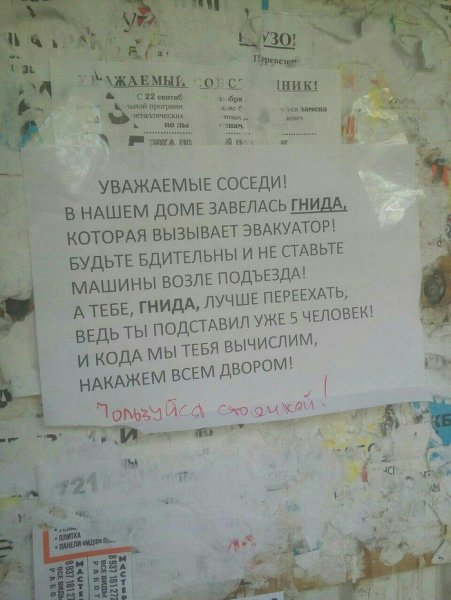 УЗО!
Перевезем
АЖАЕМЫ
НИК!
С 22 сентяб
замена
УВАЖАЕМЫЕ СОСЕДИ!
В НАШЕМ ДОМЕ ЗАВЕЛАСЬ ГНИДА,
КОТОРАЯ ВЫЗЫВАЕТ ЭВАКУАТОР!
БУДЬТЕ БДИТЕЛЬНЫ И НЕ СТАВЬТЕ
МАШИНЫ ВОЗЛЕ ПОДЪЕЗДА!
А ТЕБЕ, ГНИДА, ЛУЧШЕ ПЕРЕЕХАТЬ,
ВЕДЬ ТЫ ПОДСТАВИЛ УЖЕ 5 ЧЕЛОВЕК!
И КОДА МЫ ТЕБЯ ВЫЧИСЛИМ,
НАКАЖЕМ ВСЕМ ДВОРОМ!
Пользуйся стоянкой!
721
• ПЛИТКА
• ПАНЕЛИ «МДФ»